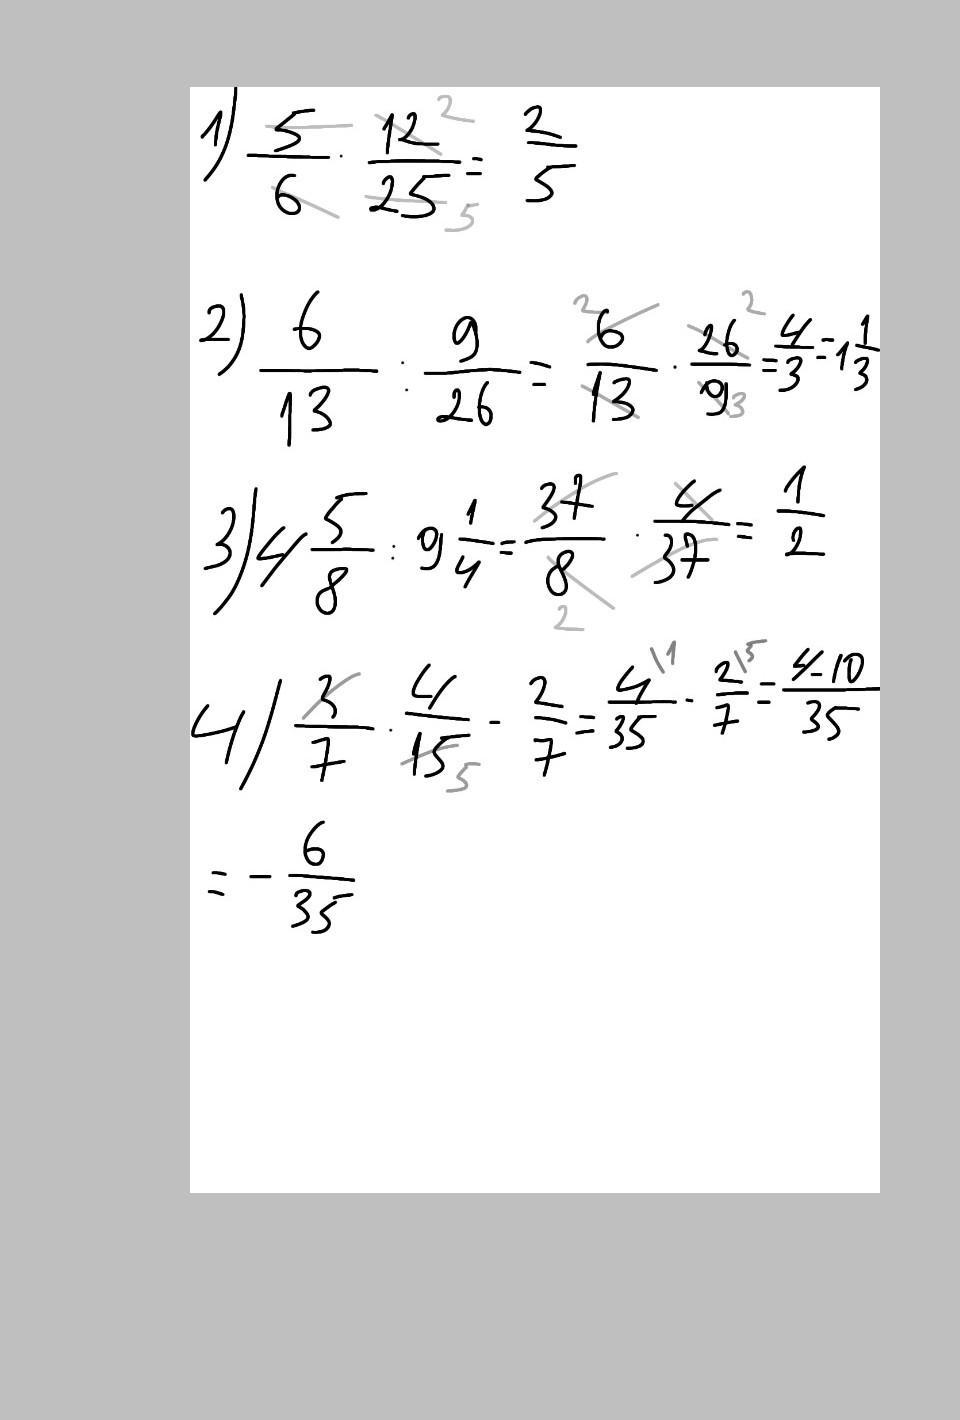 1) 5/6 · 12/25 = 2/5
2) 6/13 : 9/26 = 6/13 · 26/9 = 4/3 = 1 1/3
3) 4 5/8 : 9 1/4 = 37/8 · 4/37 = 1/2
4) 3/7 · 4/15 - 2/7 = 4/35 - 2/7 = 4-10/35
= - 6/35